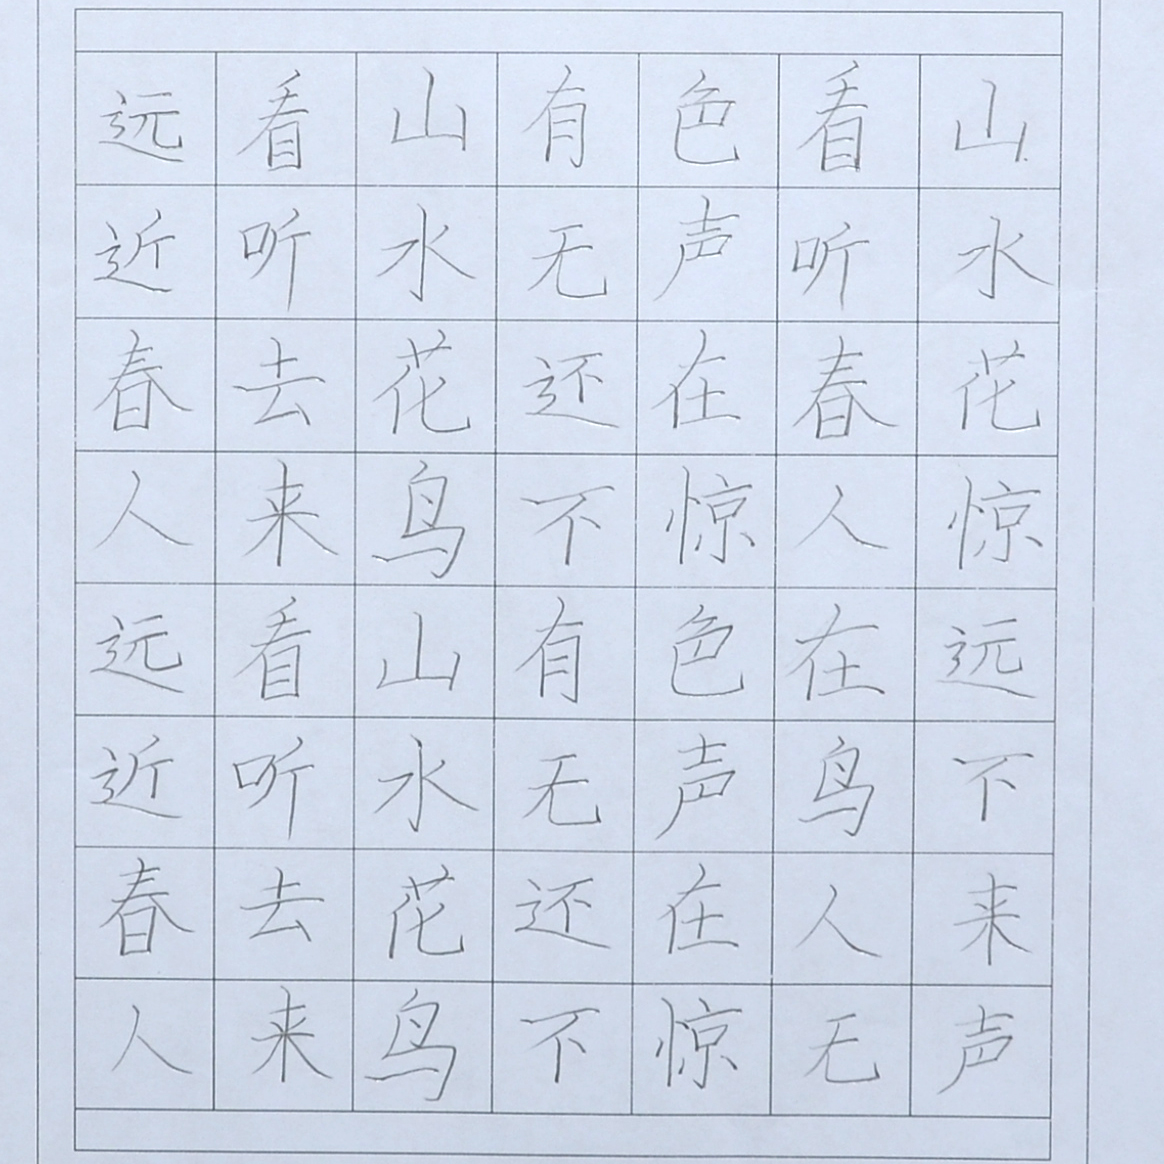 远看山有色看山
近听水无声听水
春去花还在春花
人来鸟不惊人惊
远看山有色在远
近听水无声鸟不
春去花还在人来
人来鸟不惊无声